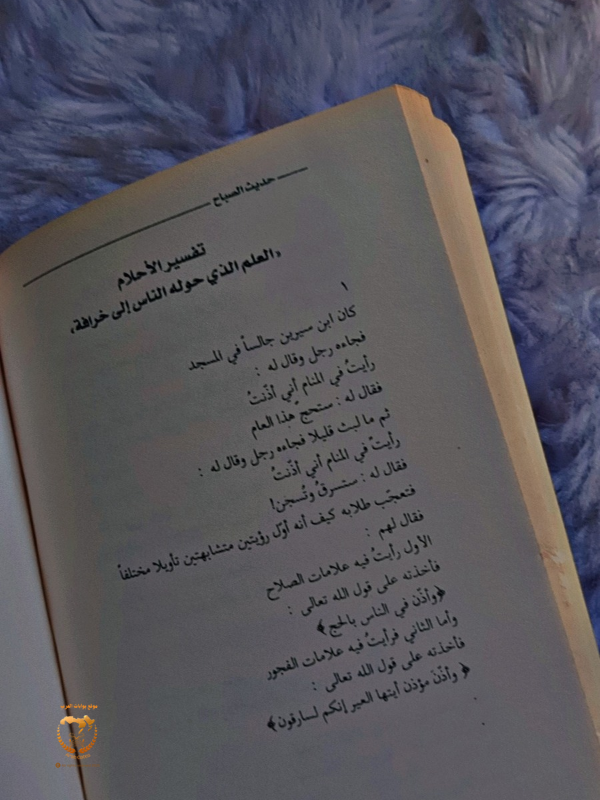 حديث الصباح
تفسير الأحلام
«العلم الذي حوله الناس إلى خرافة»
١
كان ابن سيرين جالساً في المسجد
فجاءه رجل وقال له :
رأيتُ في المنام أني أذّنتُ
فقال له : ستحج هذا العام
ثم ما لبث قليلا فجاءه رجل وقال له :
رأيتُ في المنام أني أذّنتُ
فقال له : ستسرقُ وتُسجن!
فتعجّب طلابه كيف أنه أوّل رؤيتين متشابهتين تأويلا مختلفاً
فقال لهم :
الأول رأيتُ فيه علامات الصلاح
فأخذته على قول الله تعالى :
﴿وأذّن في الناس بالحج﴾
وأما الثاني فرأيتُ فيه علامات الفجور
فأخذته على قول الله تعالى :
﴿ وأذّن مؤذن أيتها العير إنكم لسارقون﴾
موقع بوابات العرب